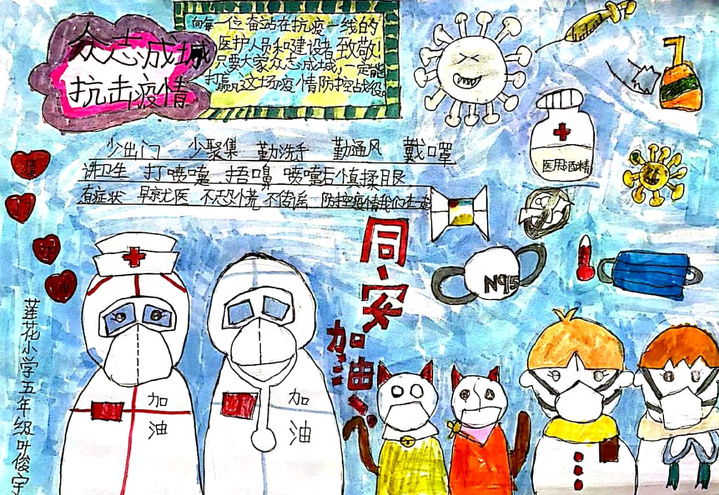 众志成城
抗击疫情
向每一位奋站在抗疫一线的
医护人员和建设者致敬!
只要大家众志成城,一定能
打赢这场疫情防控战役。
少出门 少聚集 勤洗手 勤通风 戴口罩
讲卫生 打喷嚏 捂口鼻 喷嚏后慎揉眼
有症状 早就医 不恐慌 不传谣 防控疫情我们在一起
医用酒精
N95
同安
加油!
加油
加油
莲花小学五年级叶俊宇